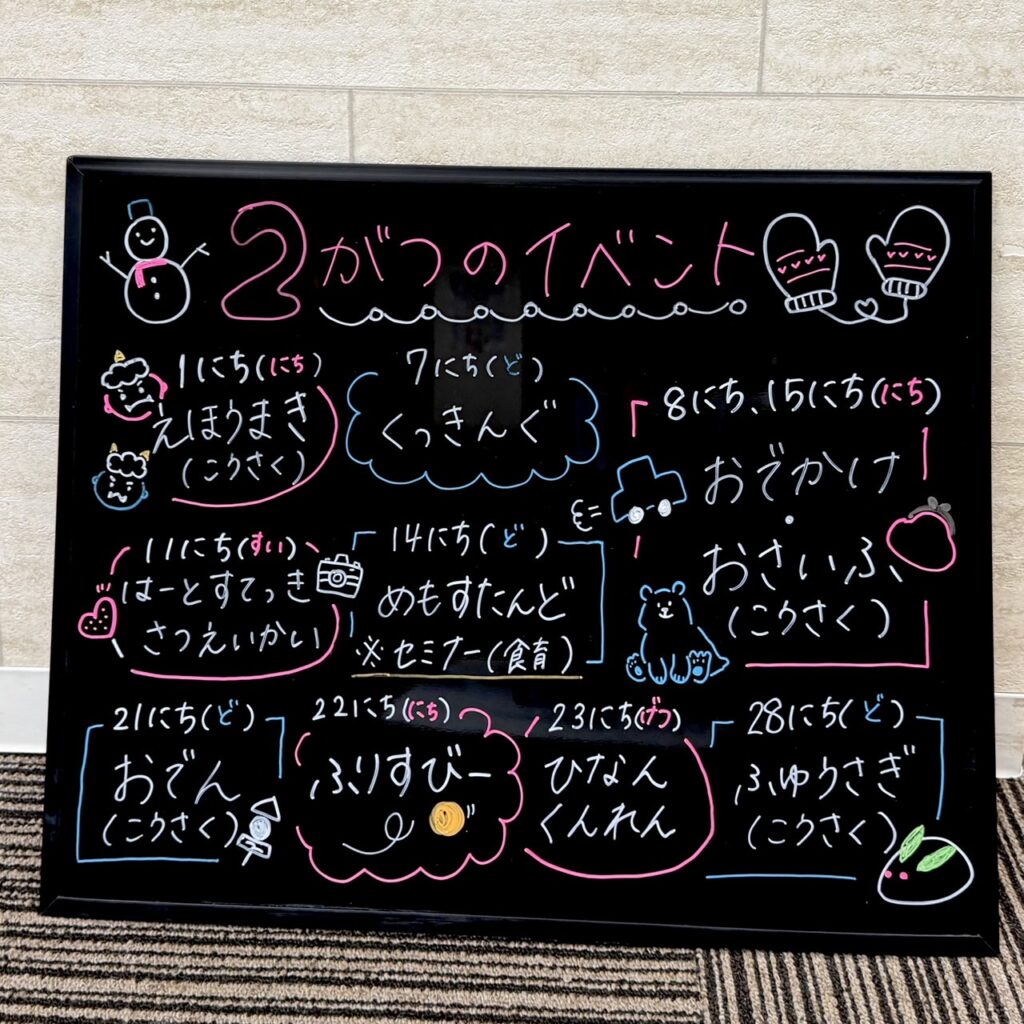 2がつのイベント
1にち(にち)
えほうまき
(こうさく)
7にち(ど)
くっきんぐ
8にち、15にち(にち)
おでかけ
・
おさいふ
(こうさく)
11にち(すい)
はーとすてっき
さつえいかい
14にち(ど)
めもすたんど
※セミナー(食育)
21にち(ど)
おでん
(こうさく)
22にち(にち)
ふりすびー
23にち(げつ)
ひなん
くんれん
28にち(ど)
ふゆうさぎ
(こうさく)